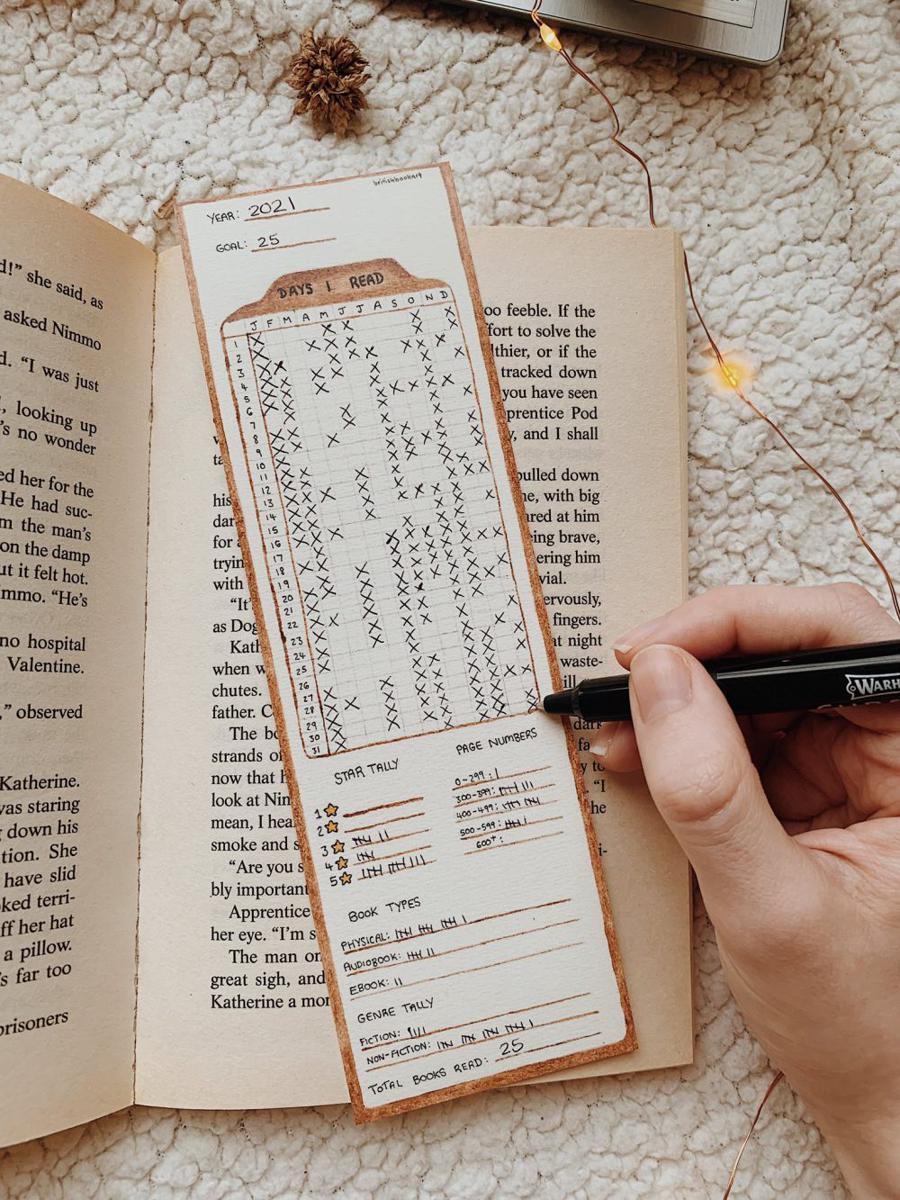 d!" she said, as
asked Nimmo
d. "I was just
, looking up
's no wonder
ed her for the
He had suc-
m the man's
on the damp
ut it felt hot.
immo. "He's
no hospital
Valentine.
," observed
Katherine.
was staring
down his
tion. She
have slid
oked terri-
ff her hat
a pillow.
's far too
prisoners
britishbookart
YEAR: 2021
GOAL: 25
DAYS I READ
J F M A M J J A S O N D
1
2
3
4
5
6
7
8
9
10
11
12
13
14
15
16
17
18
19
20
21
22
23
24
25
26
27
28
29
30
31
STAR TALLY
1
2
3
4
5
PAGE NUMBERS
0-299:
300-399:
400-499:
500-599:
600+:
BOOK TYPES
PHYSICAL:
AUDIOBOOK:
EBOOK:
GENRE TALLY
FICTION:
NON-FICTION:
TOTAL BOOKS READ: 25
oo feeble. If the
fort to solve the
lthier, or if the
tracked down
you have seen
prentice Pod
y, and I shall
pulled down
ne, with big
ared at him
eing brave,
ering him
vial.
ervously,
fingers.
at night
waste-
his
dar
for
tryin
with
"It'
as Dog
Kath
when w
chutes.
father. C
The bo
strands o
now that h
look at Nin
mean, I hea
smoke and s
"Are you s
bly important
Apprentice
her eye. "I'm s
The man on
great sigh, and
Katherine a mor
WARH